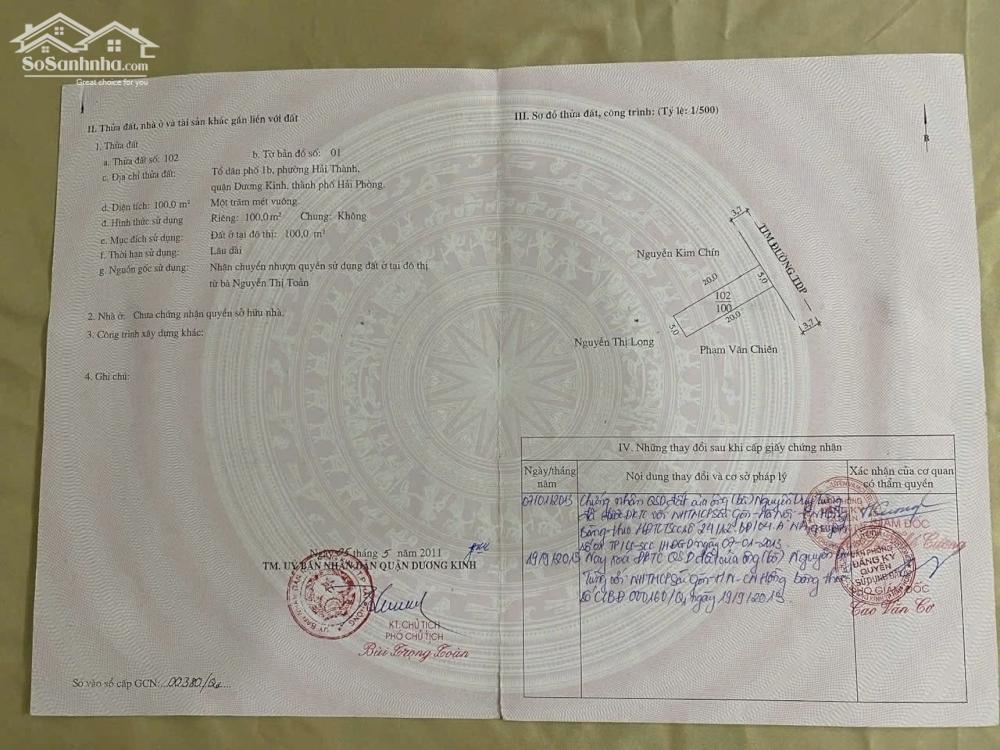 SoSanhnha.com
Great choice for you
II. Thửa đất, nhà ở và tài sản khác gắn liền với đất
1. Thửa đất
a. Thửa đất số: 102 b. Tờ bản đồ số: 01
c. Địa chỉ thửa đất: Tổ dân phố 1b, phường Hải Thành,
quận Dương Kinh, thành phố Hải Phòng.
d. Diện tích: 100,0 m² Một trăm mét vuông.
đ. Hình thức sử dụng Riêng: 100,0 m² Chung: Không
e. Mục đích sử dụng: Đất ở tại đô thị: 100,0 m²
f. Thời hạn sử dụng: Lâu dài
g. Nguồn gốc sử dụng: Nhận chuyển nhượn quyền sử dụng đất ở tại đô thị
từ bà Nguyễn Thị Toản
2. Nhà ở: Chưa chứng nhận quyền sở hữu nhà.
3. Công trình xây dựng khác:
4. Ghi chú:
Ngày 05 tháng 5 năm 2011
TM. UỶ BAN NHÂN DÂN QUẬN DƯƠNG KINH
KT. CHỦ TỊCH
PHÓ CHỦ TỊCH
Bùi Trọng Toàn
Số vào sổ cấp GCN: 00380/
III. Sơ đồ thửa đất, công trình: (Tỷ lệ: 1/500)
B
3,7
TIM ĐƯỜNG TDP
Nguyễn Kim Chín
20.0
5,0
102
100
5,0
20.0
3,7
Nguyễn Thị Long
Phạm Văn Chiến
IV. Những thay đổi sau khi cấp giấy chứng nhận
Ngày/tháng năm
Nội dung thay đổi và cơ sở pháp lý
Xác nhận của cơ quan có thẩm quyền
07/01/2013 Chứng nhận QSD đất của ông (bà) Nguyễn
đã được ĐKTC với NHTMCP Sài Gòn - Hà Nội - CN Hồng
Bàng theo HĐTCTSC số
ngày 07-01-2013
19/9/2019 Nay xoá ĐKTC QSD đất của ông (bà) Nguyễn
với NHTMCP Sài Gòn - HN - CN Hồng Bàng theo
số 000160/ ngày 19/9/2019
GIÁM ĐỐC
Cường
VĂN PHÒNG
ĐĂNG KÝ
QUYỀN
SỬ DỤNG ĐẤT
PHÓ GIÁM ĐỐC
Cao Văn Cơ